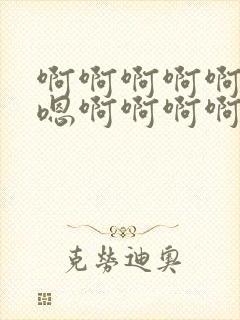 啊啊啊啊啊
嗯啊啊啊啊
克劳迪奥